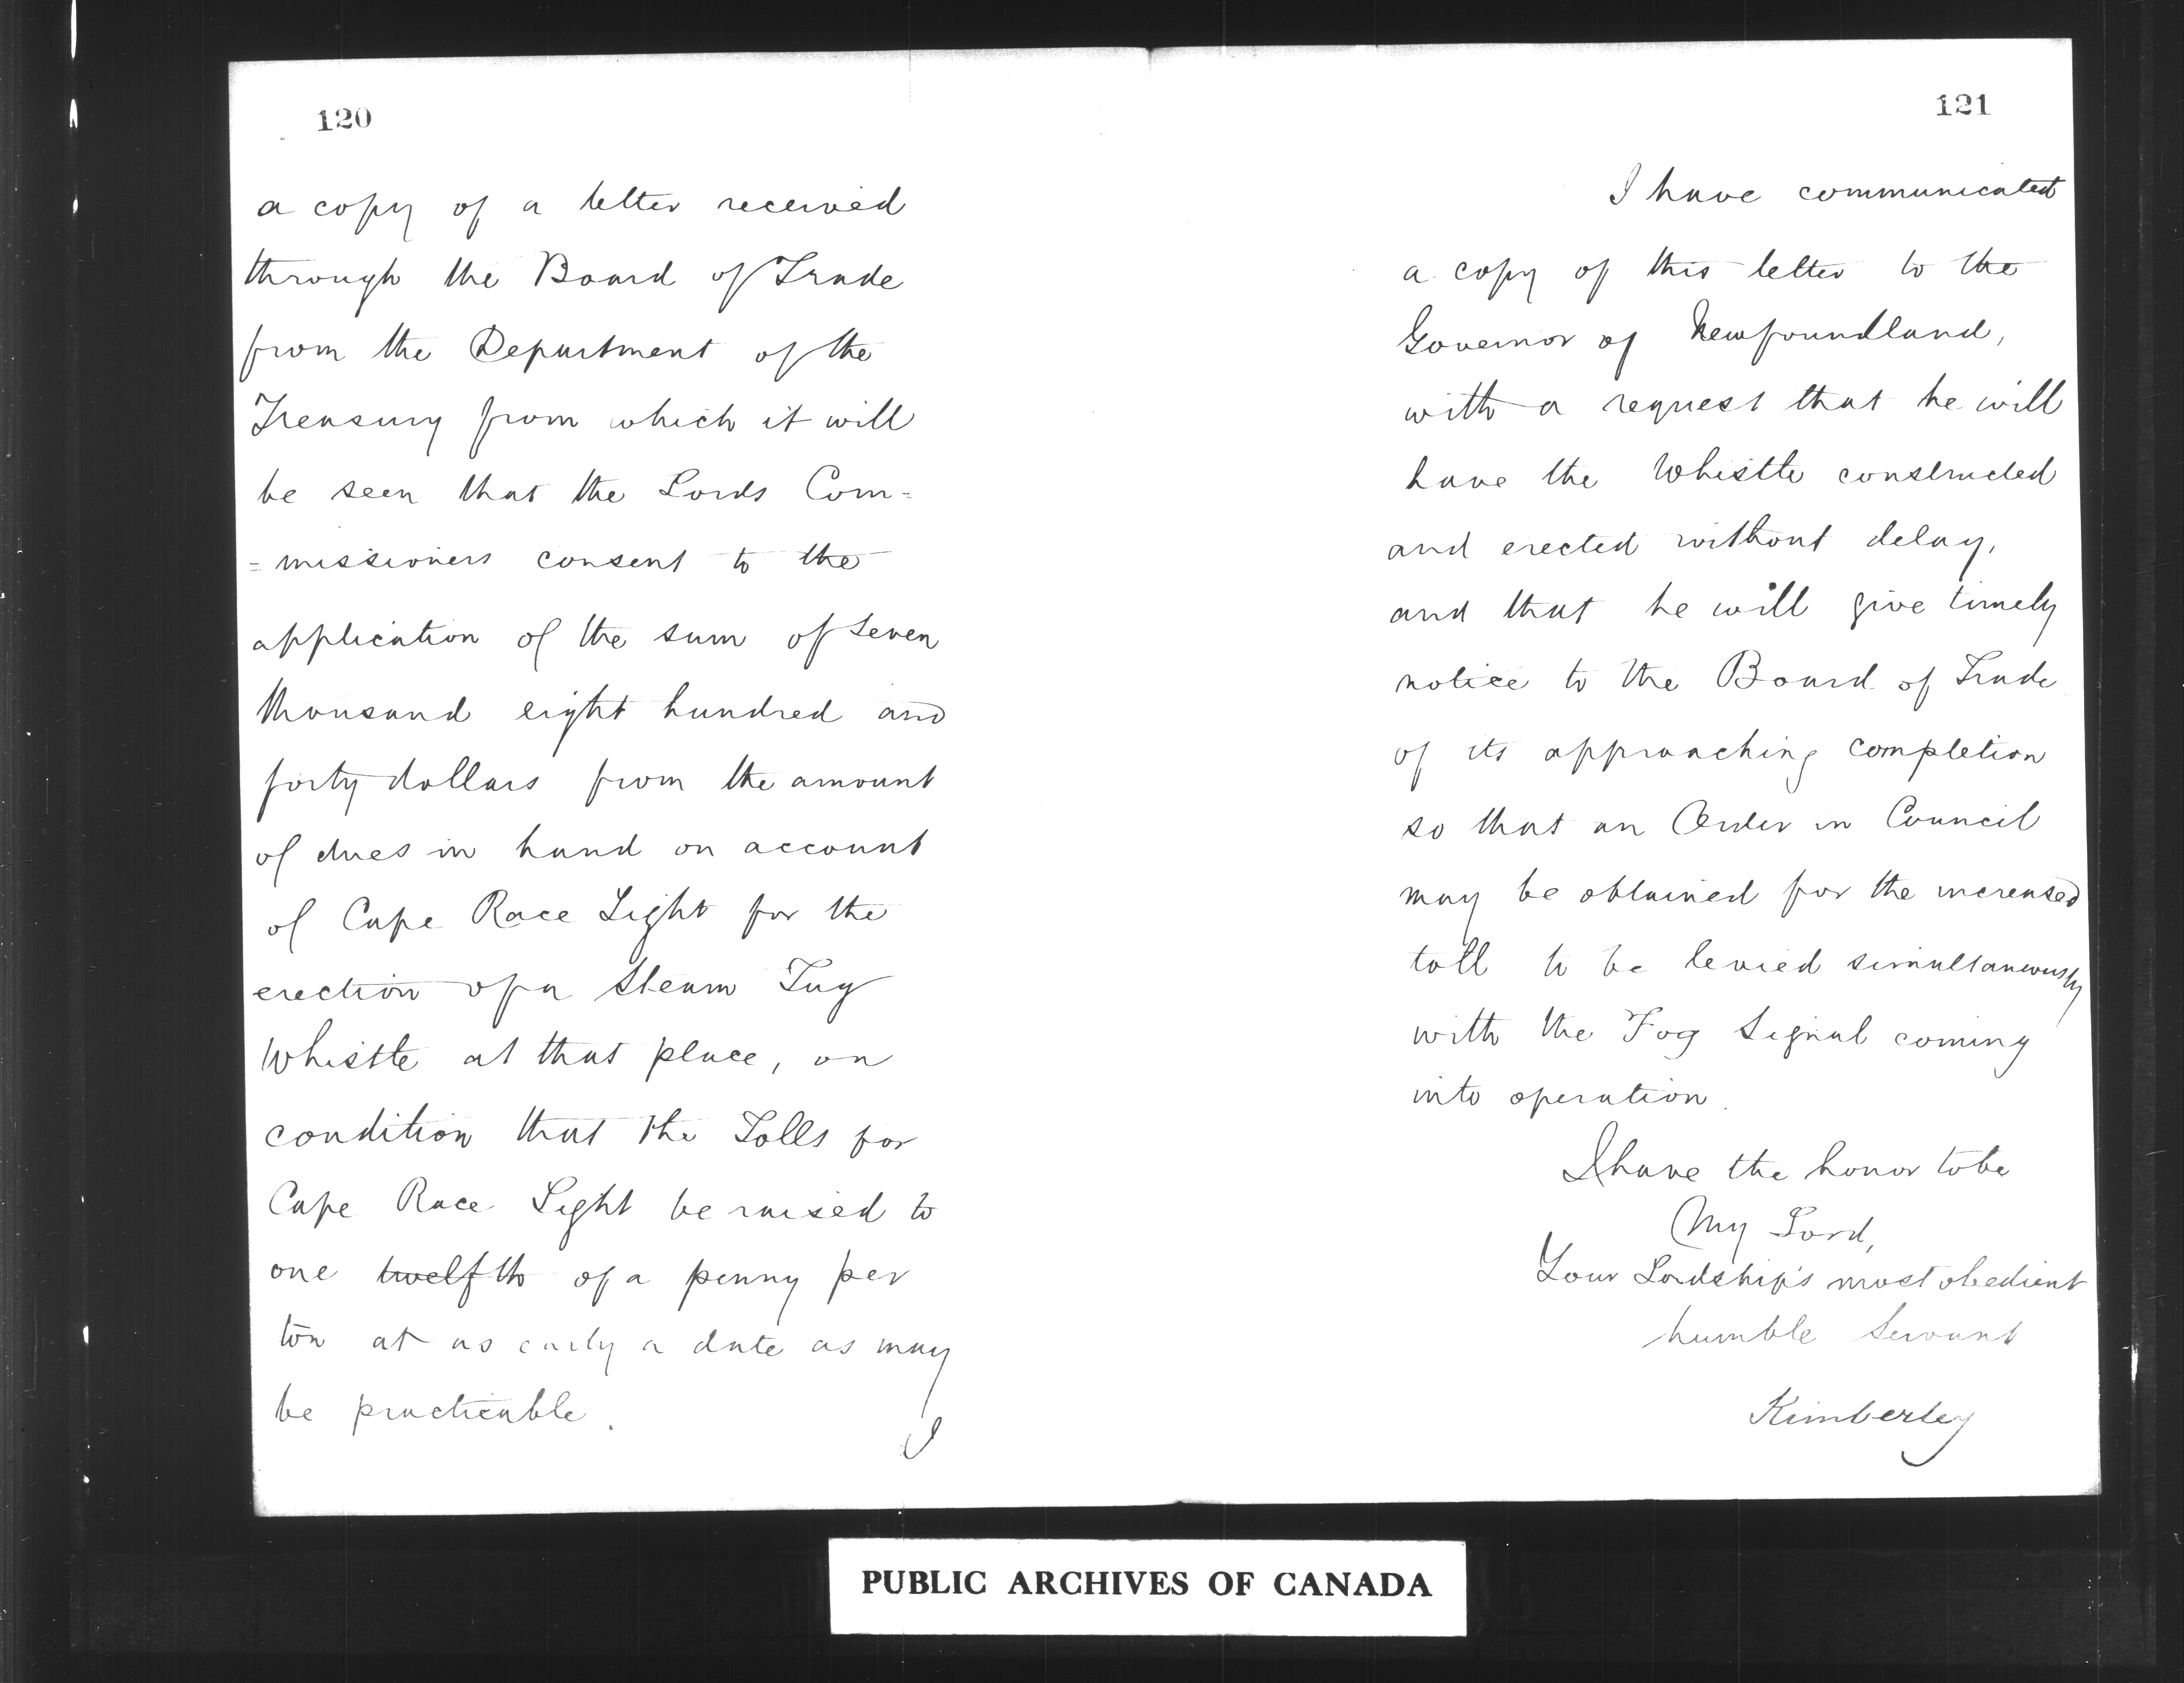 120
a copy of a letter received
through the Board of Trade
from the Department of the
Treasury from which it will
be seen that the Lords Com=
=missioners consent to the
application of the sum of seven
thousand eight hundred and
forty dollars from the amount
of dues in hand on account
of Cape Race Light for the
erection of a Steam Tug
Whistle at that place, on
condition that the Tolls for
Cape Race Light be raised to
one twelfth of a penny per
ton at as early a date as may
be practicable.
I
121
I have communicated
a copy of this letter to the
Governor of Newfoundland,
with a request that he will
have the Whistle constructed
and erected without delay,
and that he will give timely
notice to the Board of Trade
of its approaching completion
so that an Order in Council
may be obtained for the increased
toll to be levied simultaneously
with the Fog Signal coming
into operation.
I have the honor to be
My Lord,
Your Lordship's most obedient
humble Servant
Kimberley
PUBLIC ARCHIVES OF CANADA